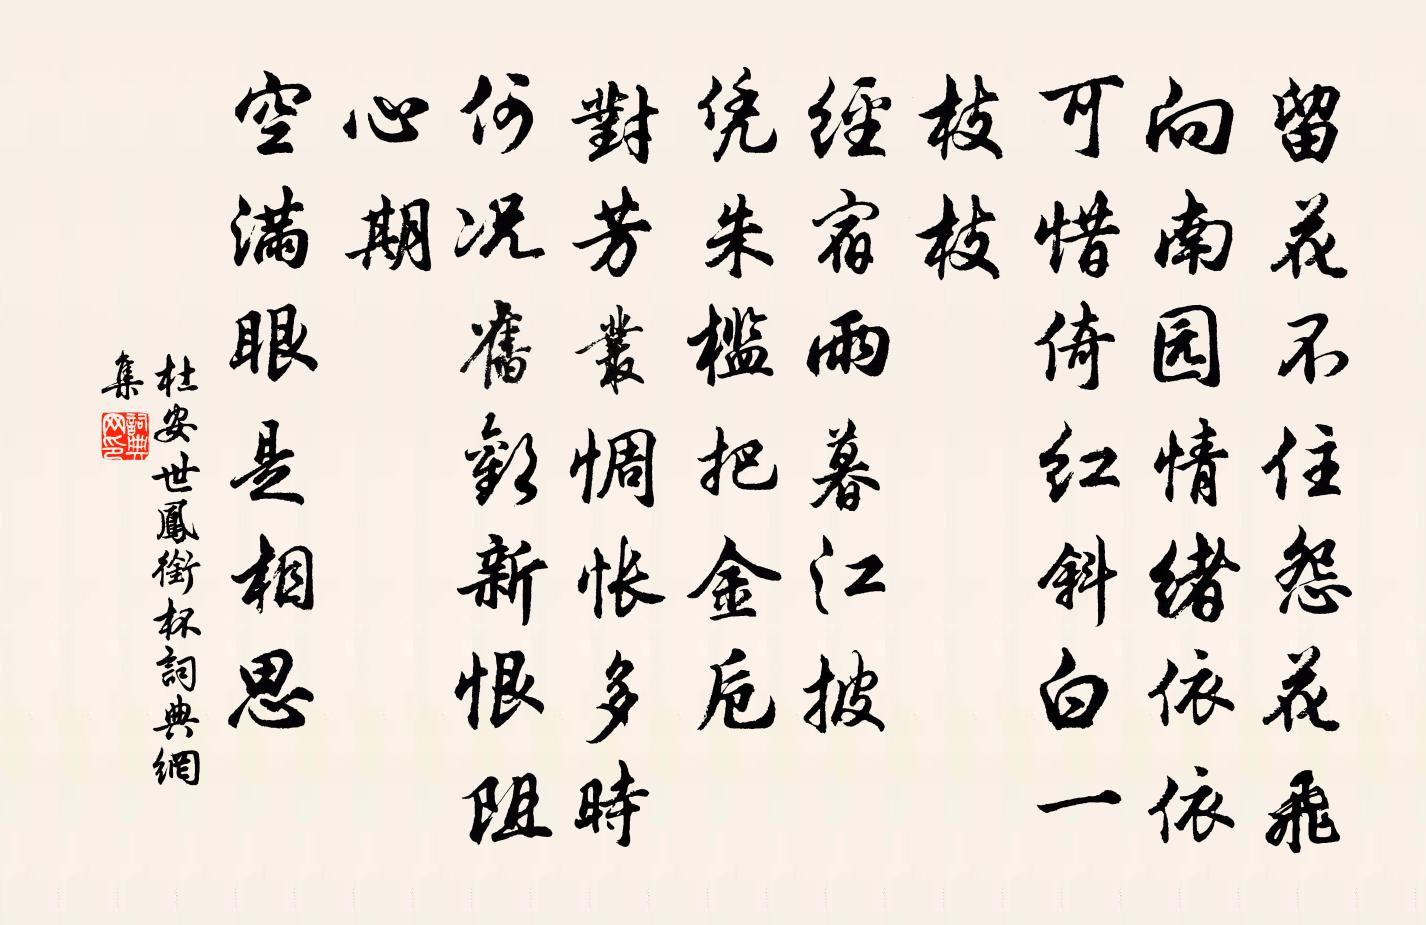 留花不住怨花飛
向南园情緒依依
可惜倚红斜白一
枝枝
經宿雨暮江披
凭朱檻把金卮
對芳叢惆悵多時
何况舊歡新恨阻
心期
空滿眼是相思
杜安世鳳銜杯詞典網
集
詞典
网印